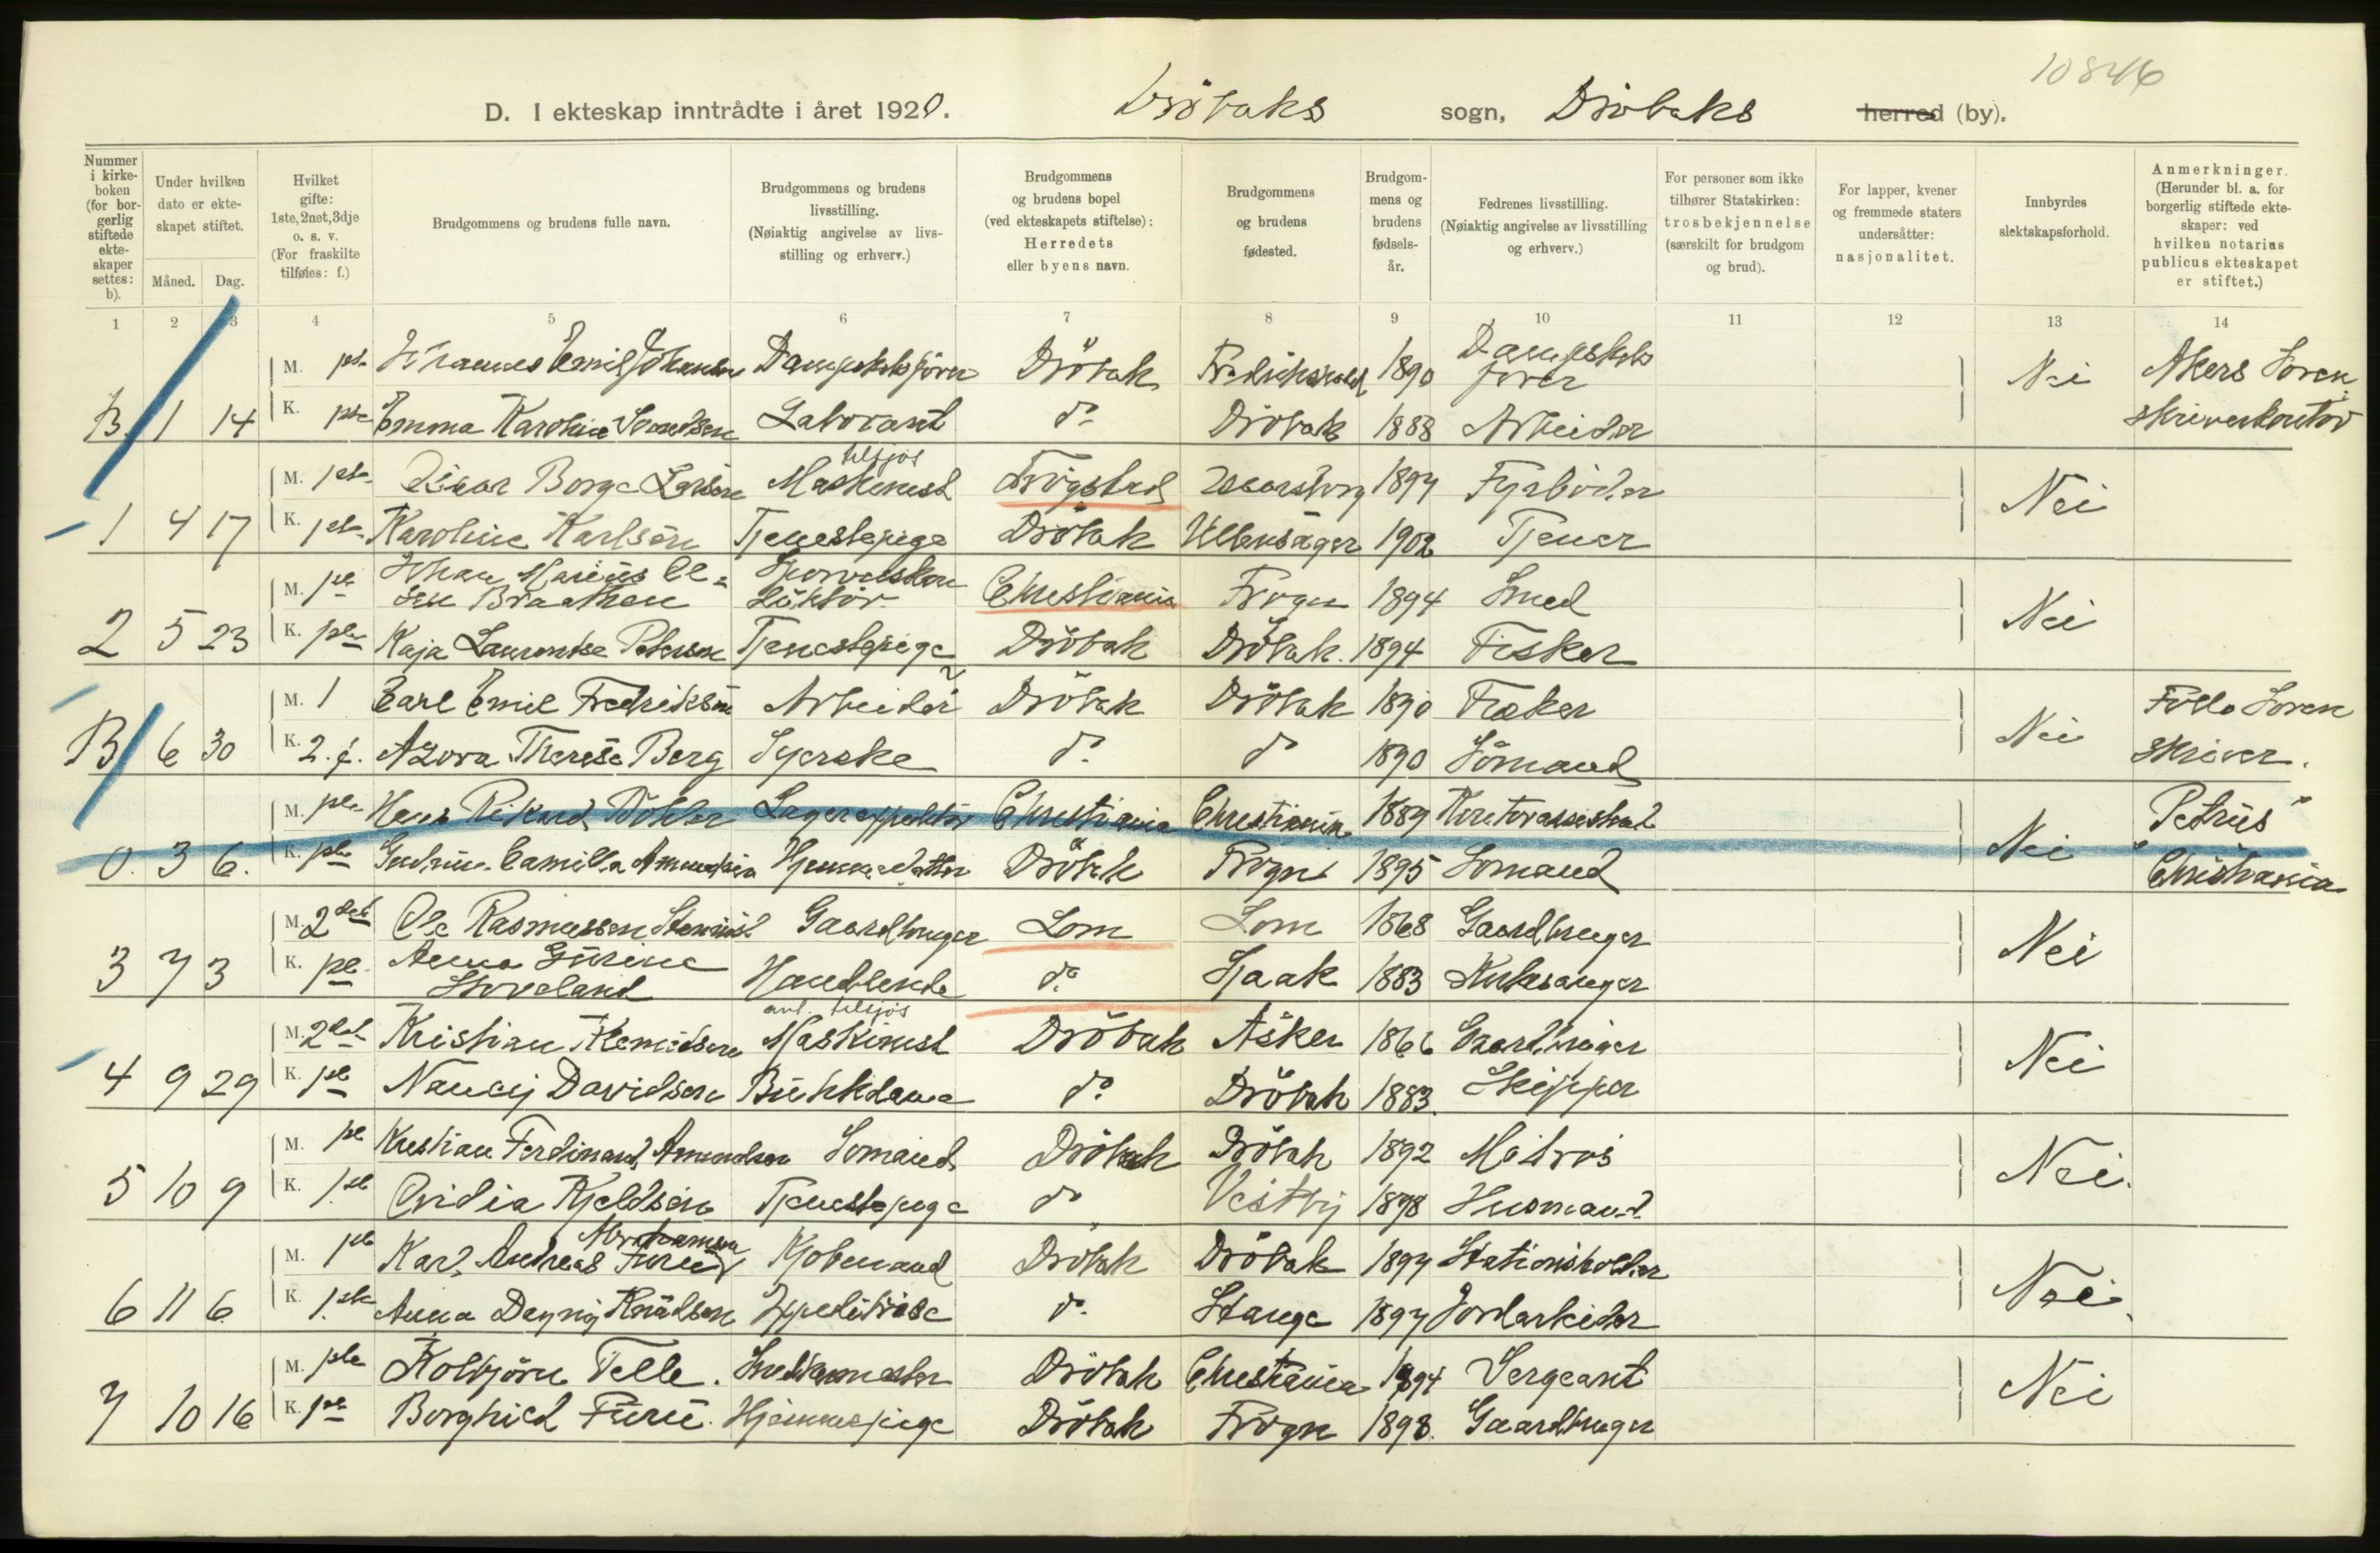 10846
D. I ekteskap inntrådte i året 1920. Dröbaks sogn, Dröbaks herred (by).
Nummer i kirke-boken (for bor-gerlig stiftede ekte-skaper settes: b).
Under hvilken dato er ekte-skapet stiftet.
Måned. Dag.
Hvilket gifte: 1ste, 2net, 3dje o. s. v. (For fraskilte tilføies: f.)
Brudgommens og brudens fulle navn.
Brudgommens og brudens livsstilling. (Nøiaktig angivelse av livs-stilling og erhverv.)
Brudgommens og brudens bopel (ved ekteskapets stiftelse): Herredets eller byens navn.
Brudgommens og brudens fødested.
Brudgom-mens og brudens fødsels-år.
Fedrenes livsstilling. (Nøiaktig angivelse av livsstilling og erhverv.)
For personer som ikke tilhører Statskirken: trosbekjennelse (særskilt for brudgom og brud).
For lapper, kvener og fremmede staters undersåtter: nasjonalitet.
Innbyrdes slektskapsforhold.
Anmerkninger. (Herunder bl. a. for borgerlig stiftede ekte-skaper: ved hvilken notarius publicus ekteskapet er stiftet.)
1 2 3 4 5 6 7 8 9 10 11 12 13 14
M. 1ste Johannes Emil Johansen Dampskibsförer Dröbak Fredrikshald 1890 Dampskibsförer Nei Akers Soren
B. 1 14 K. 1ste Emma Karoline Dröbak do Laborant Dröbak 1888 Arbeider skriverkontor
M. 1ste Oscar Borge Larsen Maskinist tilsjös Trögstad 1897 Fyrböder Nei
1 4 17 K. 1ste Karoline Karlsen Tjenestepige Dröbak Ullensaker 1902 Tjener
M. 1ste Johan Marius Olsen Braathen Sporveiskonduktör Christiania Frogn 1894 Smed Nei
2 5 23 K. 1ste Kaja Laurentse Petersen Tjenestepige Dröbak Dröbak. 1894 Fisker
M. 1 Carl Emil Fredriksen Arbeider Dröbak Dröbak 1890 Fisker Nei Follo Soren
B 6 30 K. 2. f. Azora Therese Berg Syerske do do 1890 Sömand skriver.
M. 1ste Hans Rikard Lagerexpeditör Christiania Christiania 1889 Kontorassistent Nei Petrus
0. 3 6. K. 1ste Gudrun Camilla Amundsen Hjemmedatter Dröbak Frogn 1895 Sömand Christiania
M. 2det Ole Rasmussen Gaardbruger Lom Lom 1868 Gaardbruger Nei
3 7 3 K. 1ste Anna Gurine Storeland Handlende do Skjaak 1883 Kirkesanger
M. 2det Kristian Maskinist tilsjös Dröbak Asker 1866 Gaardbruger Nei
4 9 29 K. 1ste Nancy Davidsen Butikdame do Dröbak 1883. Skipper
M. 1ste Kristian Ferdinand Amundsen Sömand Dröbak Dröbak 1892 Matros Nei.
5 10 9 K. 1ste Ovidia Kjeldsen Tjenestepige do Vestby 1898 Husmand
M. 1ste Karl Andreas Abrahamsen Furu Kjöbmand Dröbak Dröbak 1897 Stationsholder Nei.
6 11 6 K. 1ste Anna Dagny Knudsen Expeditrise do Stange 1897 Jordarbeider
M. 1ste Kolbjörn Telle. Dröbak Christiania 1894 Sergeant Nei
7 10 16 K. 1ste Borghild Furu. Hjemmepige Dröbak Frogn 1898. Gaardbruger